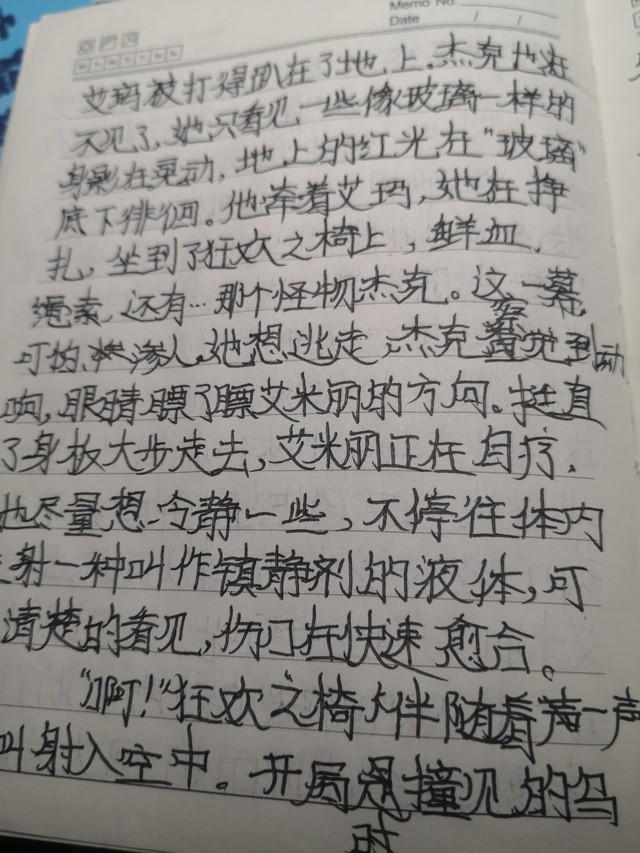 Memo No.
Date / /
艾玛被打得趴在了地上.杰克也在
不见了,她只看见一些像玻璃一样的
身影在灵动,地上的红光在"玻璃"
底下徘徊。他牵着艾玛,她在挣
扎,坐到了狂欢之椅上,鲜血.
绳索,还有…那个怪物杰克。这一幕,
可怕、渗人。她想逃走,杰克察觉到动
响,眼睛瞟了瞟艾米丽的方向。挺直
了身板大步走去,艾米丽正在自疗.
她尽量想冷静一些,不停往体内
射一种叫作镇静剂的液体,可
清楚的看见,伤口在快速愈合。
"啊!"狂欢之椅伴随着声一声
叫射入空中。开局是撞见的乌
时